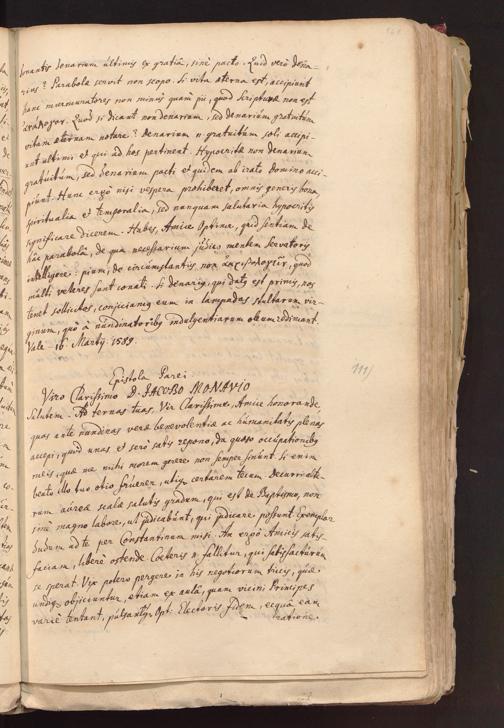 donantis denarium ultimis ex gratiâ, sine pacto. Quid verò dena-
rius? Parabola servit non scopo. Si vita aeterna est, accipiunt
hanc murmuratores non minùs quàm pii, quod Scripturae non est
ἀνάλογον. Quod si dicant non denarium, sed denarium gratuitum
vitam aeternam notare? denarium n. gratuitum soli accipi-
unt ultimi et qui ad hos pertinent. Hypocritae non denarium
gratuitum, sed denarium pacti et quidem ab irato Domino acci-
piunt. Hunc ergò nisi vespera prohiberet, omnis generis bona
spiritualia et temporalia, sed nunquam salutaria hypocritis
significare dicerem. Habes, Amice Optime, quid sentiam de
hac parabola, de qua necessarium judico mentem Servatoris
intelligere: pium, de circumstantiis non ἀκριβολογεῖν, quod
multi veteres sunt conati. Si denarius, qui datus est primis, nos
tenet sollicitos, conjiciamus eum in lampadas stultarum vir-
ginum, quò à nundinatoribus indulgentiarum oleum redimant.
Vale 16 Martij. 1589.
Epistola Parei
Viro Clarissimo D. JACOBO MONAVIO
111)
Salutem. Ad ternas tuas, Vir Clarissime, Amice honorande,
quas ante nundinas verae benevolentiae ac humanitatis plenas
accepi, quod unas et serò satis repono, da quaeso occupationibus
meis, quae me mihi morem gerere non semper sinunt. Si enim
beato illo tuo otio fruerer, utique certarem tecum. Decurri alte-
rum aureae scalae salutis gradum, qui est de Baptismo, non
sine magno labore, ut judicabunt, qui judicare possunt Exemplar
dudum ad te per Constantinum misi. An ergò Amicis satis-
faciam, liberè ostende. Caeteris n. fallitur, qui satisfacturum
se sperat. Vix potero pergere in his negotiorum tricis, quae
undique objiciuntur, etiam ex aulâ, quam vicini Principes
variè tentant, pulsantque Opt. Electoris fidem, ecquâ eam
ratione.